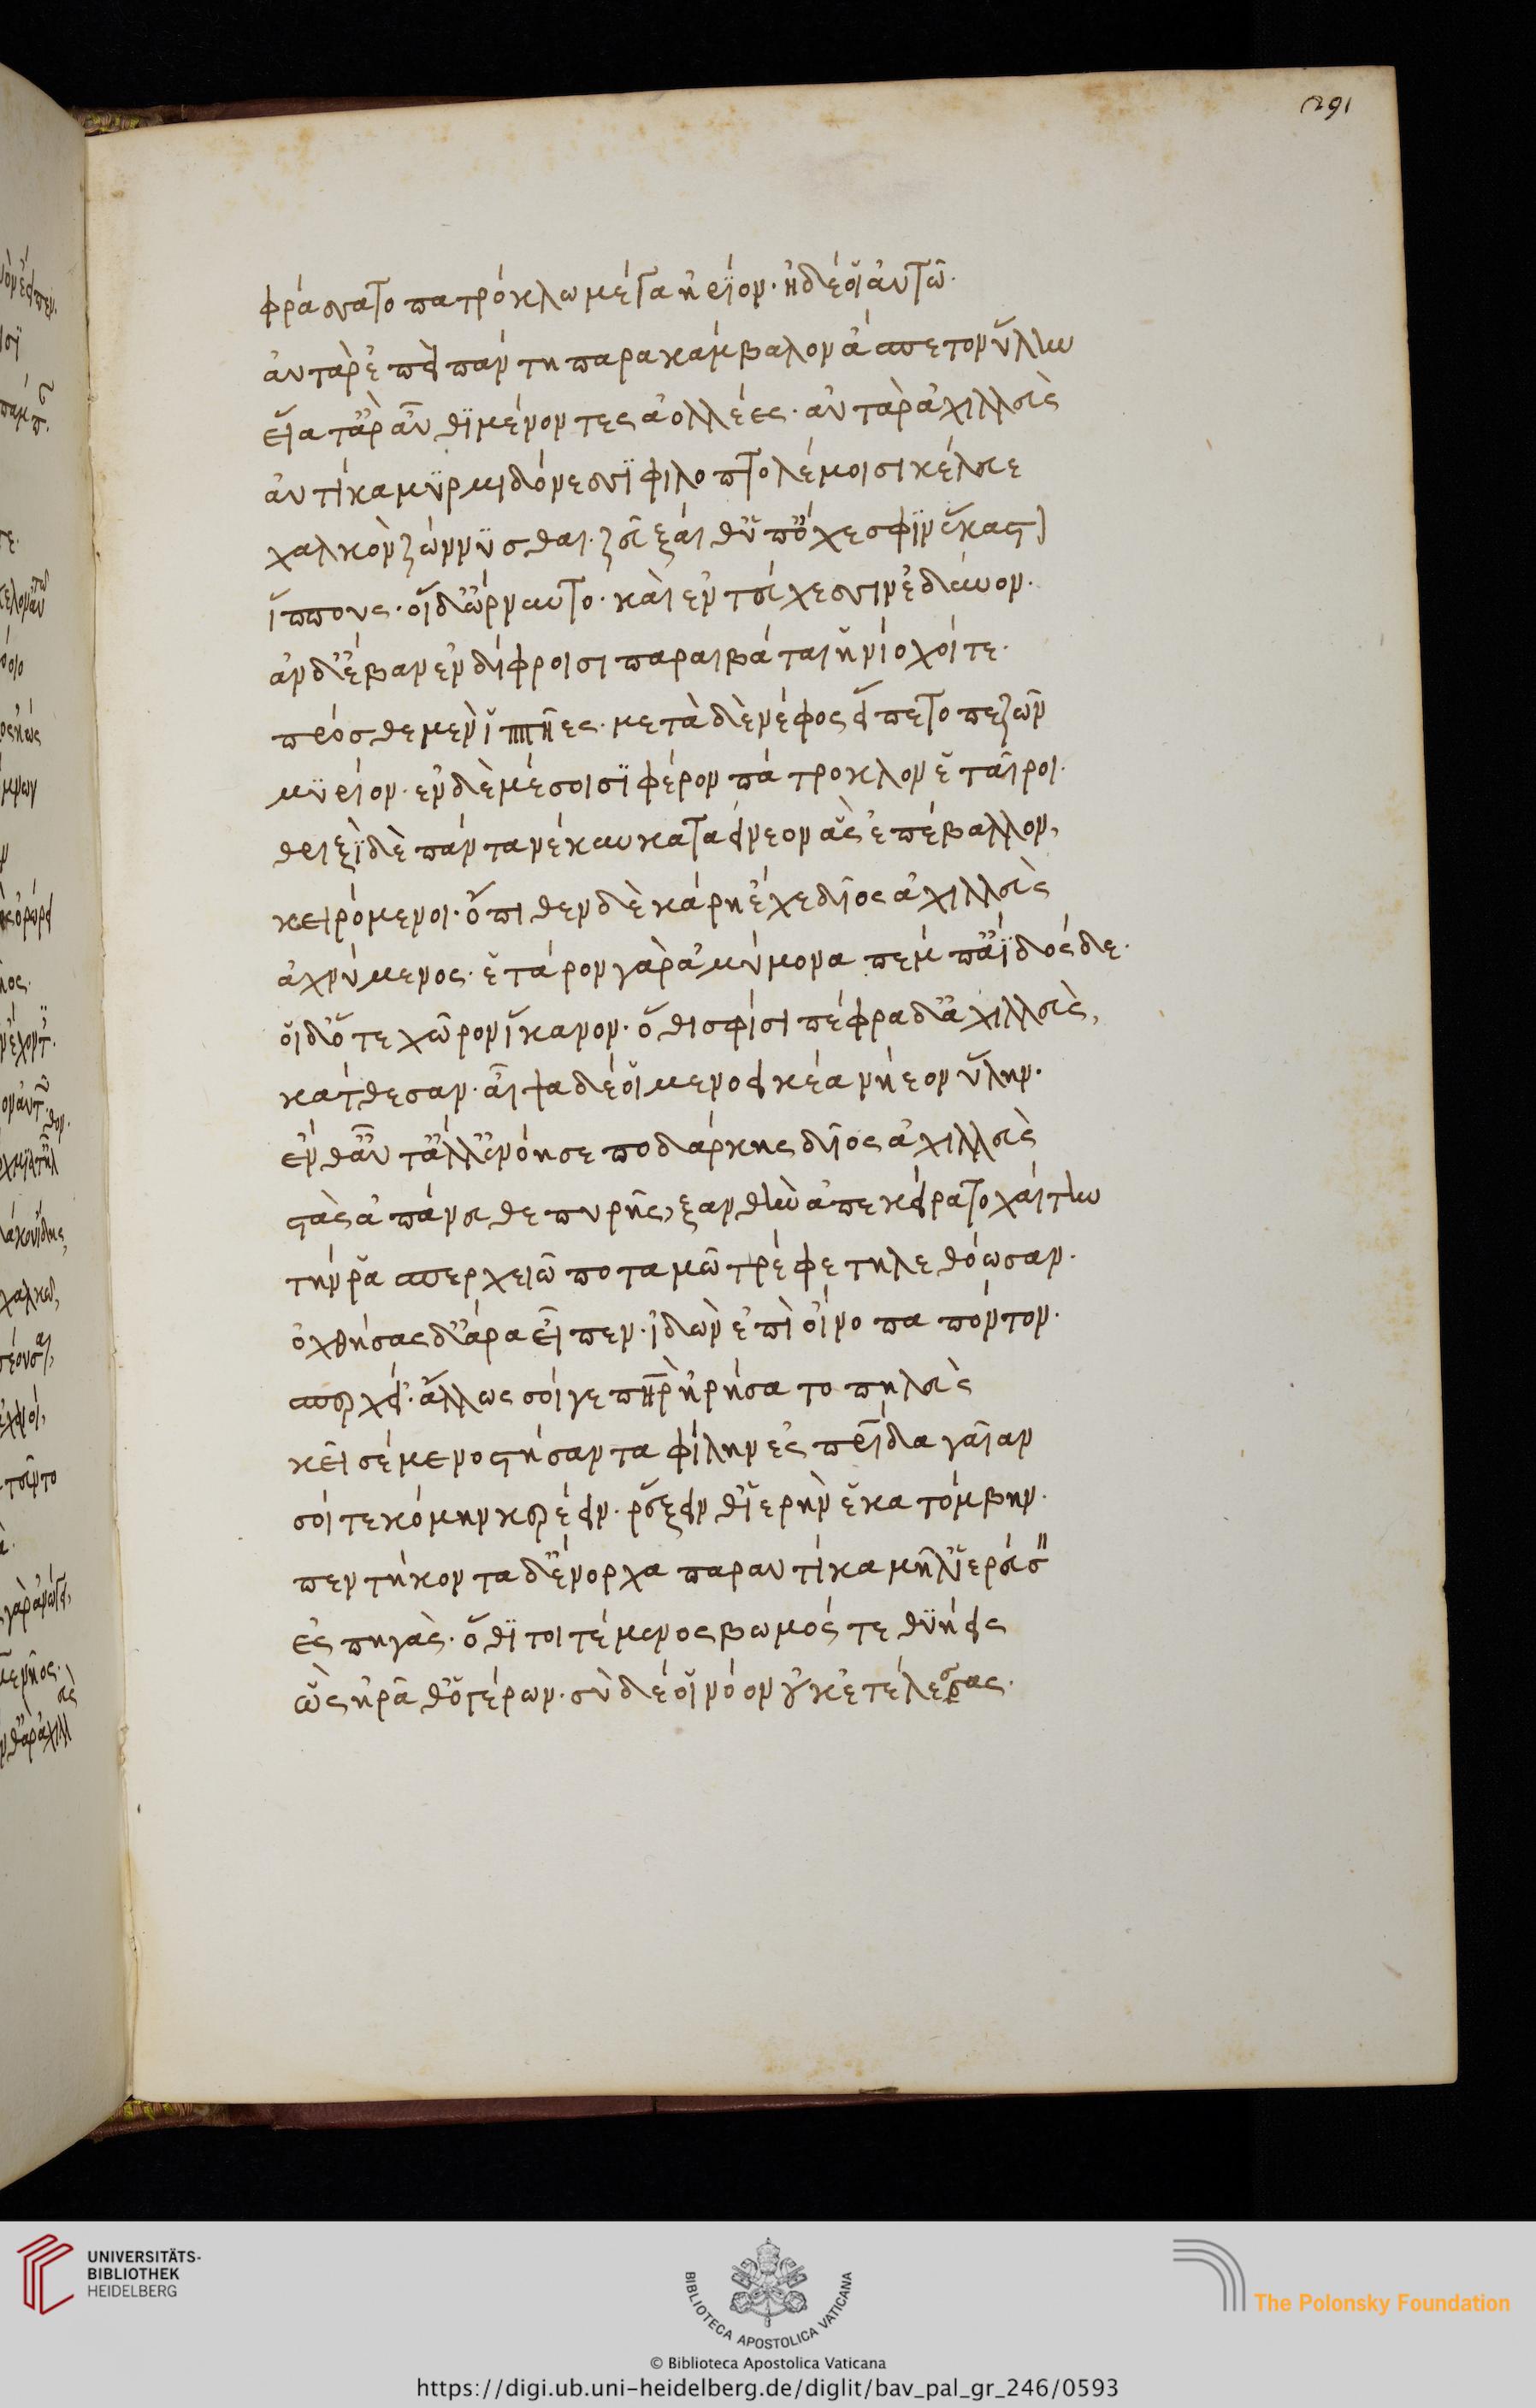 291
φράσσατο πατρόκλω μέγα ἠρίον· ἠδὲ οἷ αὐτῶ·
αὐτὰρ ἐπεὶ πάντη παρακάμβαλον ἄσπετον ὕλην
εἵατ' ἄρ' αὖθϊ μένοντες ἀολλέες· αὐτὰρ ἀχιλλεὺς
αὐτίκα μϋρμιδόνεσσϊ φιλοπτολέμοισι κέλευε
χαλκὸν ζώννϋσθαι· ζεῦξαι θ' ὑπ' ὄχεσφϊν ἕκαστον
ἵππους· οἱ δ' ὤρνυντο· καὶ ἐν τεύχεσσιν ἔδυνον·
ἂν δ' ἔβαν ἐν δίφροισι παραιβάται ἡνίοχοί τε·
πρόσθε μὲν ἱππῆες· μετὰ δὲ νέφος εἵπετο πεζῶν
μϋρίον· ἐν δὲ μέσοισϊ φέρον πάτροκλον ἑταῖροι·
θριξὶ δὲ πάντα νέκυν καταείνυον ἃς ἐπέβαλλον,
κειρόμενοι· ὄπιθεν δὲ κάρη ἔχε δῖος ἀχιλλεὺς
ἀχνύμενος· ἕταρον γὰρ ἀμύμονα πέμπ' ἄϊδόσδε·
οἱ δ' ὅτε χῶρον ἵκανον· ὅθι σφίσι πέφραδ' ἀχιλλεὺς,
κάτθεσαν· αἶψα δέ οἱ μενοεικέα νήεον ὕλην·
ἔνθ' αὖτ' ἄλλ' ἐνόησε ποδάρκης δῖος ἀχιλλεὺς
στὰς ἀπάνευθε πυρῆς, ξανθὴν ἀπεκείρατο χαίτην
τήν ῥα σπερχειῶ ποταμῶ τρέφε τηλεθόωσαν·
ὀχθήσας δ' ἄρα εἶπεν· ἰδὼν ἐπὶ οἴνοπα πόντον·
σπερχεί'· ἄλλως σοί γε πατὴρ ἠρήσατο πηλεὺς
κεῖσέ με νοστήσαντα φίλην ἐς πατρίδα γαῖαν
σοί τε κόμην κερέειν· ῥέξειν θ' ἱερὴν ἑκατόμβην·
πεντήκοντα δ' ἔνορχα παραυτίκα μῆλ' ἱερεύσειν
ἐς πηγὰς· ὅθϊ τοι τέμενος βωμός τε θϋήεις
ὣς ἠρᾶθ' ὁ γέρων· σὺ δέ οἱ νόον οὐκ ἐτέλεσσας·
UNIVERSITÄTS-
BIBLIOTHEK
HEIDELBERG
BIBLIOTECA APOSTOLICA VATICANA
The Polonsky Foundation
© Biblioteca Apostolica Vaticana
https://digi.ub.uni-heidelberg.de/diglit/bav_pal_gr_246/0593